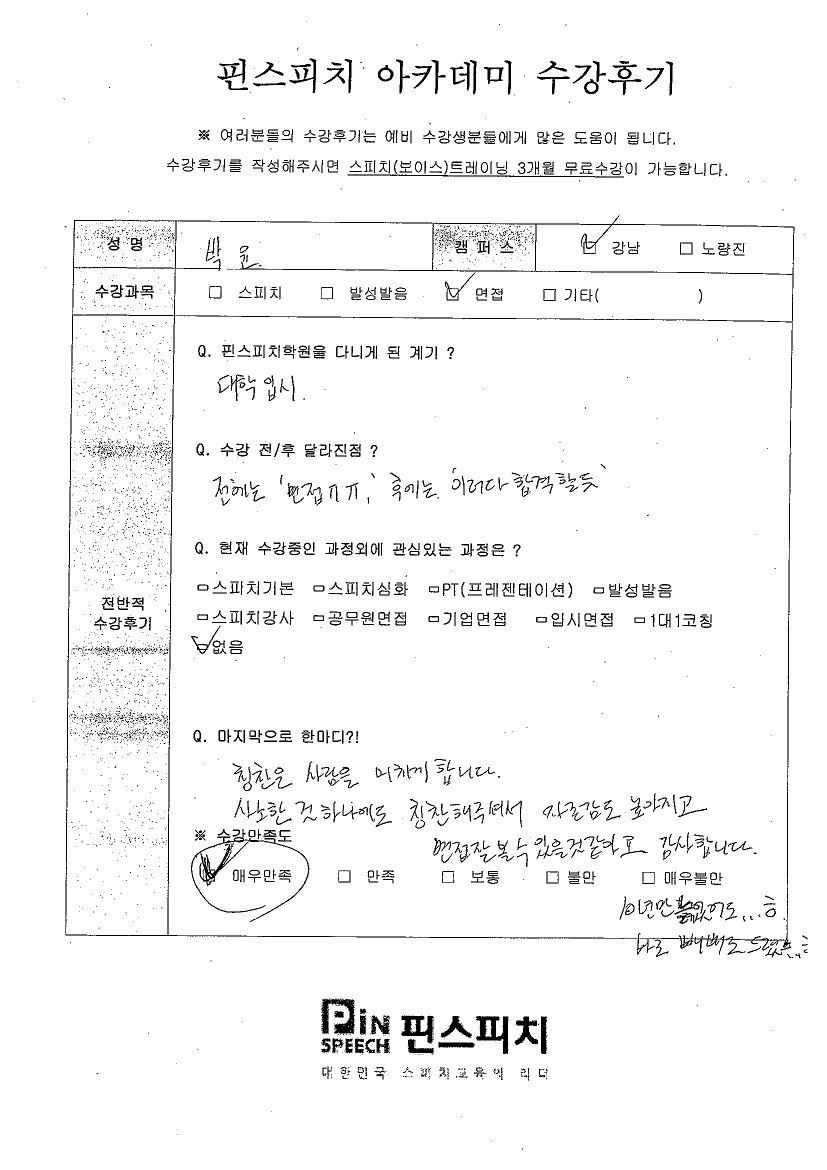 핀스피치 아카데미 수강후기
※ 여러분들의 수강후기는 예비 수강생분들에게 많은 도움이 됩니다.
수강후기를 작성해주시면 스피치(보이스)트레이닝 3개월 무료수강이 가능합니다.
성 명 박 윤 캠 퍼 스 ☑ 강남 □ 노량진
수강과목 □ 스피치 □ 발성발음 ☑ 면접 □ 기타( )
Q. 핀스피치학원을 다니게 된 계기 ?
대학입시.
Q. 수강 전/후 달라진점 ?
전에는 '면접ㅠㅠ,' 후에는 '이러다 합격할듯'
Q. 현재 수강중인 과정외에 관심있는 과정은 ?
전반적
수강후기
□스피치기본 □스피치심화 □PT(프레젠테이션) □발성발음
□스피치강사 □공무원면접 □기업면접 □입시면접 □1대1코칭
☑없음
Q. 마지막으로 한마디?!
칭찬은 사람을 미치게 합니다.
사소한 것 하나에도 칭찬해주셔서 자존감도 높아지고
※ 수강만족도
면접잘볼수있을것같아요 감사합니다.
☑ 매우만족 □ 만족 □ 보통 □ 불만 □ 매우불만
10년만
바로
PiN
SPEECH 핀스피치
대한민국 스피치교육의 리더